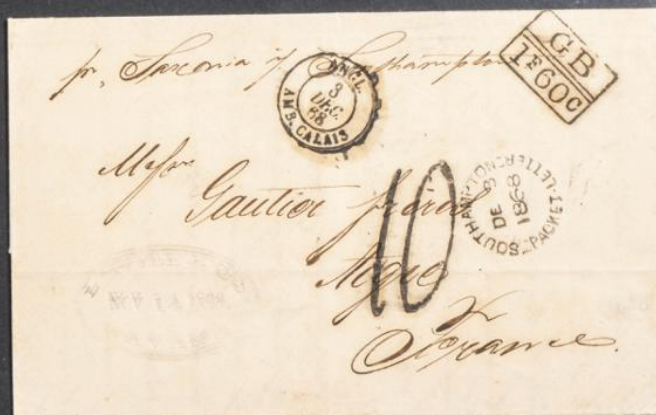 pr. Saxonia v/ Southampton
GB
1F60c
ANGL.
3
DEC.
68
AMB. CALAIS
Messrs
Gautier frères
10
SOUTHAMPTON
PACKET-LETTER
DE 3
1868
France.